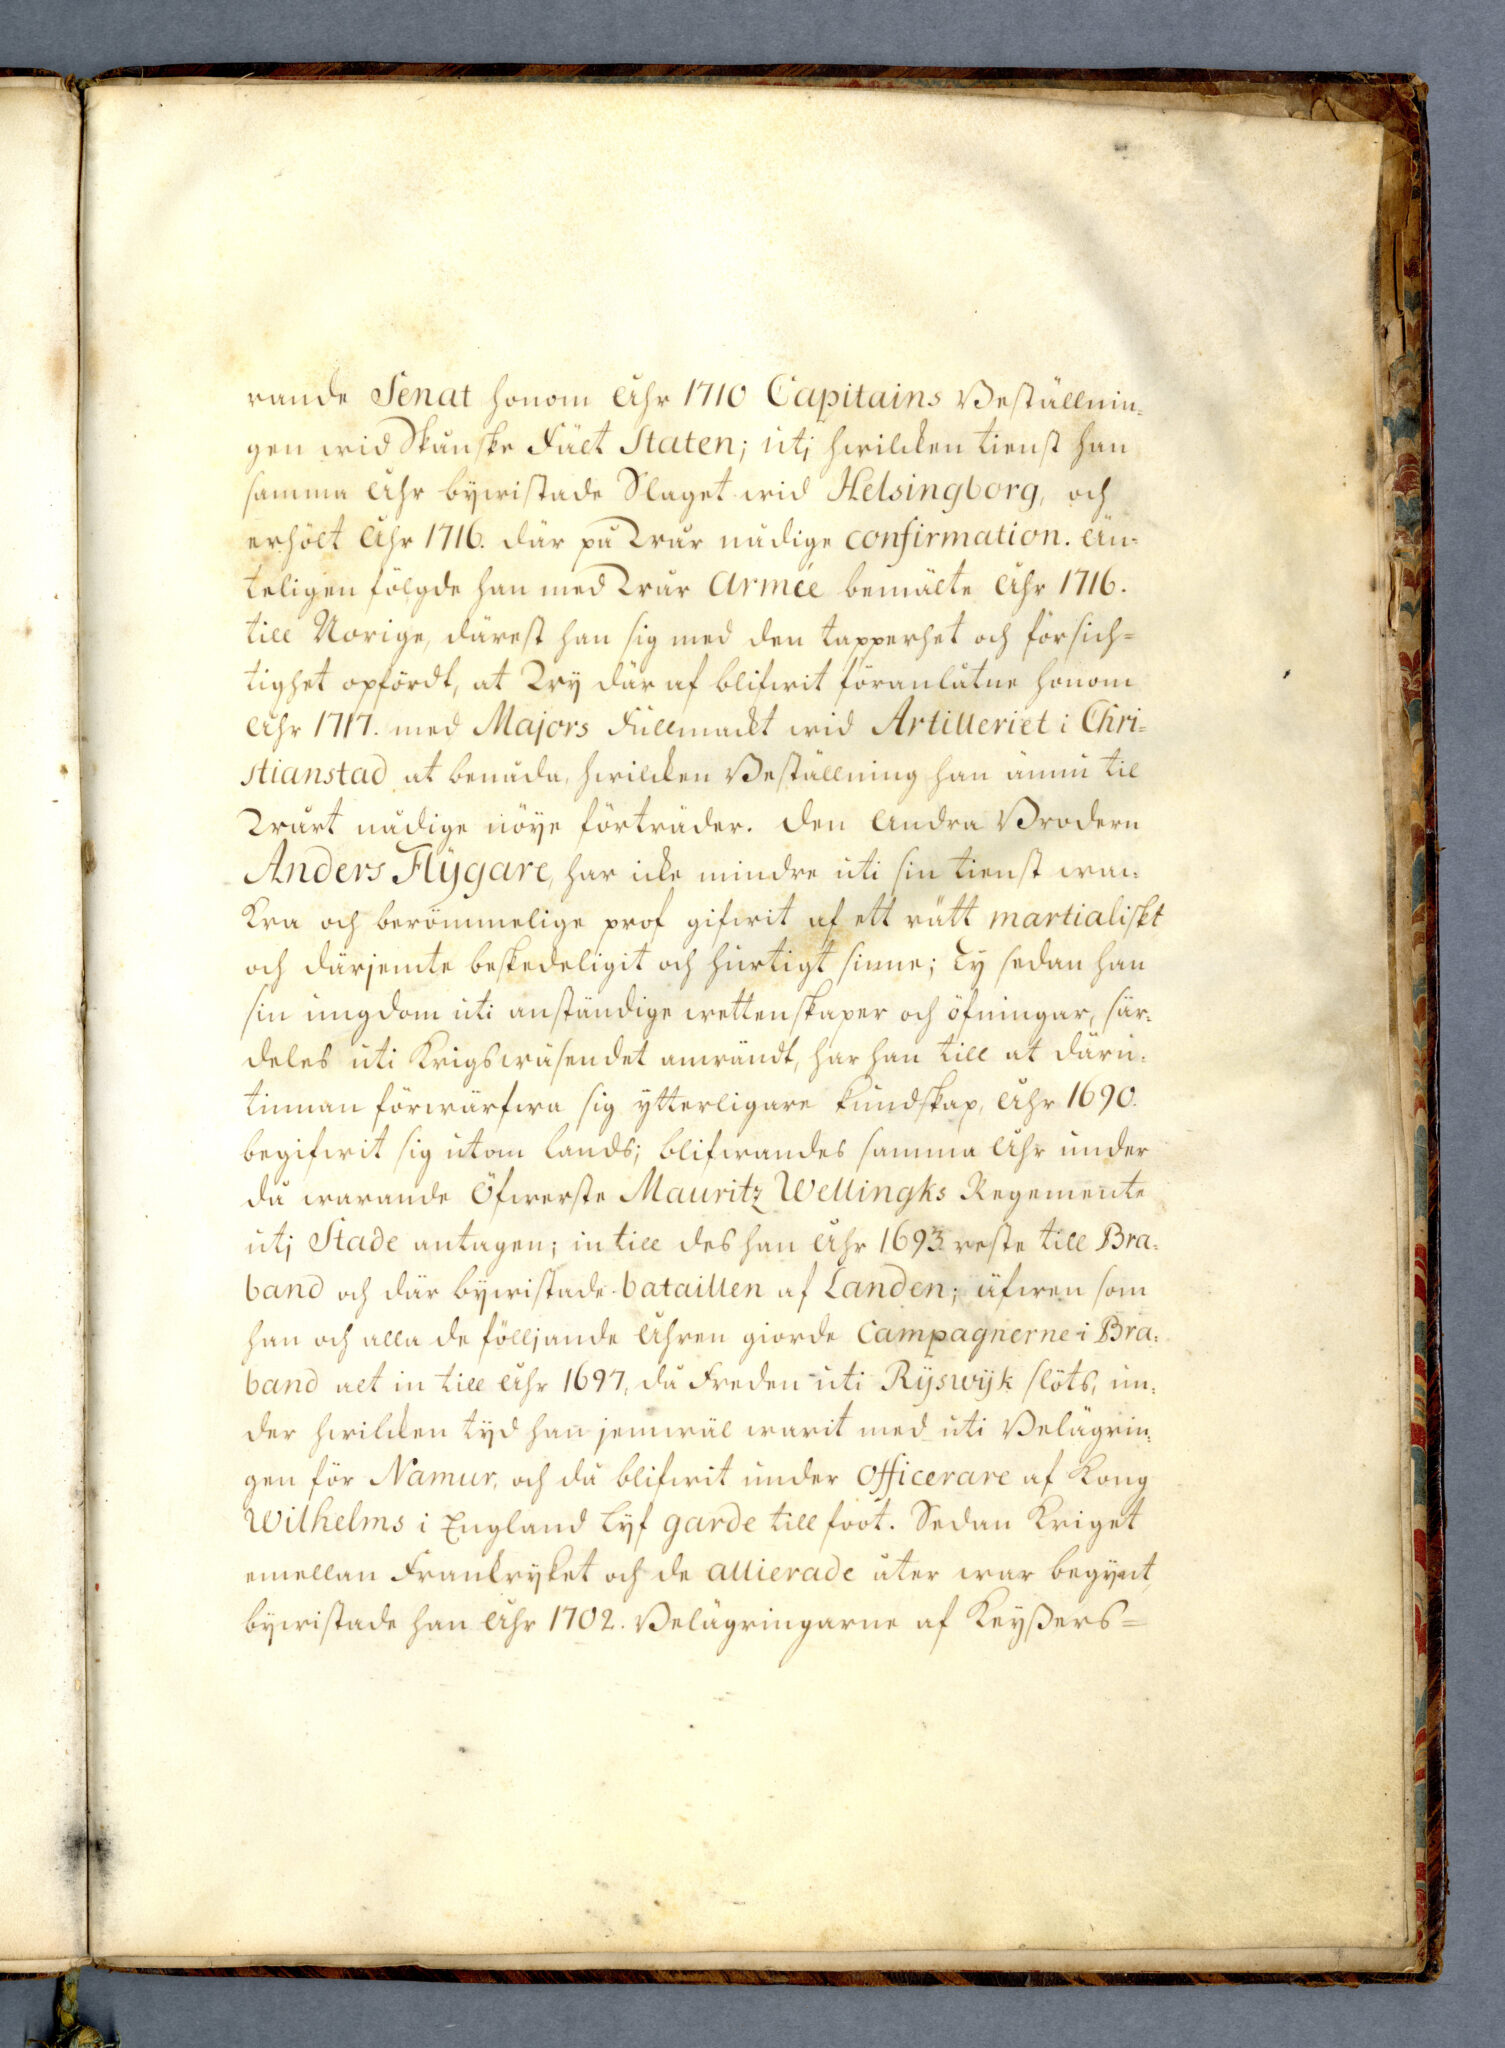 rande Senat honom Åhr 1710 Capitains Beställnin-
gen wid Skånske Fält Staten; utj hwilcken tienst han
samma Åhr bijwistade Slaget wid Helsingborg, och
erhölt Åhr 1716. där på Wår nådige confirmation. Än-
teligen fölgde han med Wår Armée bemälte Åhr 1716.
till Norige, därest han sig med den tapperhet och försich-
tighet opfördt, at Wij där af blifwit föranlåtne honom
Åhr 1717. med Majors Fullmackt wid Artilleriet i Chri-
stianstad at benåda, hwilcken Beställning han ännu til
Wårt nådige nöye förträder. Den Andra Brodern
Anders Flÿgare, har icke mindre uti sin tienst wac-
kra och berömmelige prof gifwit af ett rätt martialiskt
och därjemte beskedeligit och hurtigt sinne; Ty sedan han
sin ungdom uti anständige wettenskaper och öfningar, sär-
deles uti Krigswäsendet anwändt, har han till at däru-
tinnan förwärfwa sig ytterligare kundskap, Åhr 1690.
begifwit sig utom lands; blifwandes samma Åhr under
då warande Öfwerste Mauritz Wellingks Regemente
utj Stade antagen; in till des han Åhr 1693 reste till Bra-
band och där bijwistade bataillen af Landen; äfwen som
han och alla de fölljande Åhren giorde Campagnerne i Bra-
band alt in till Åhr 1697, då Freden uti Rijswijk slöts, un-
der hwilcken tijd han jemwäl warit med uti Belägrin-
gen för Namur, och då blifwit under Officerare af Kong
Wilhelms i England Lijf garde till foot. Sedan Kriget
emellan Franckryket och de allierade åter war begynt,
bijwistade han Åhr 1702. Belägringarne af Keyßers-